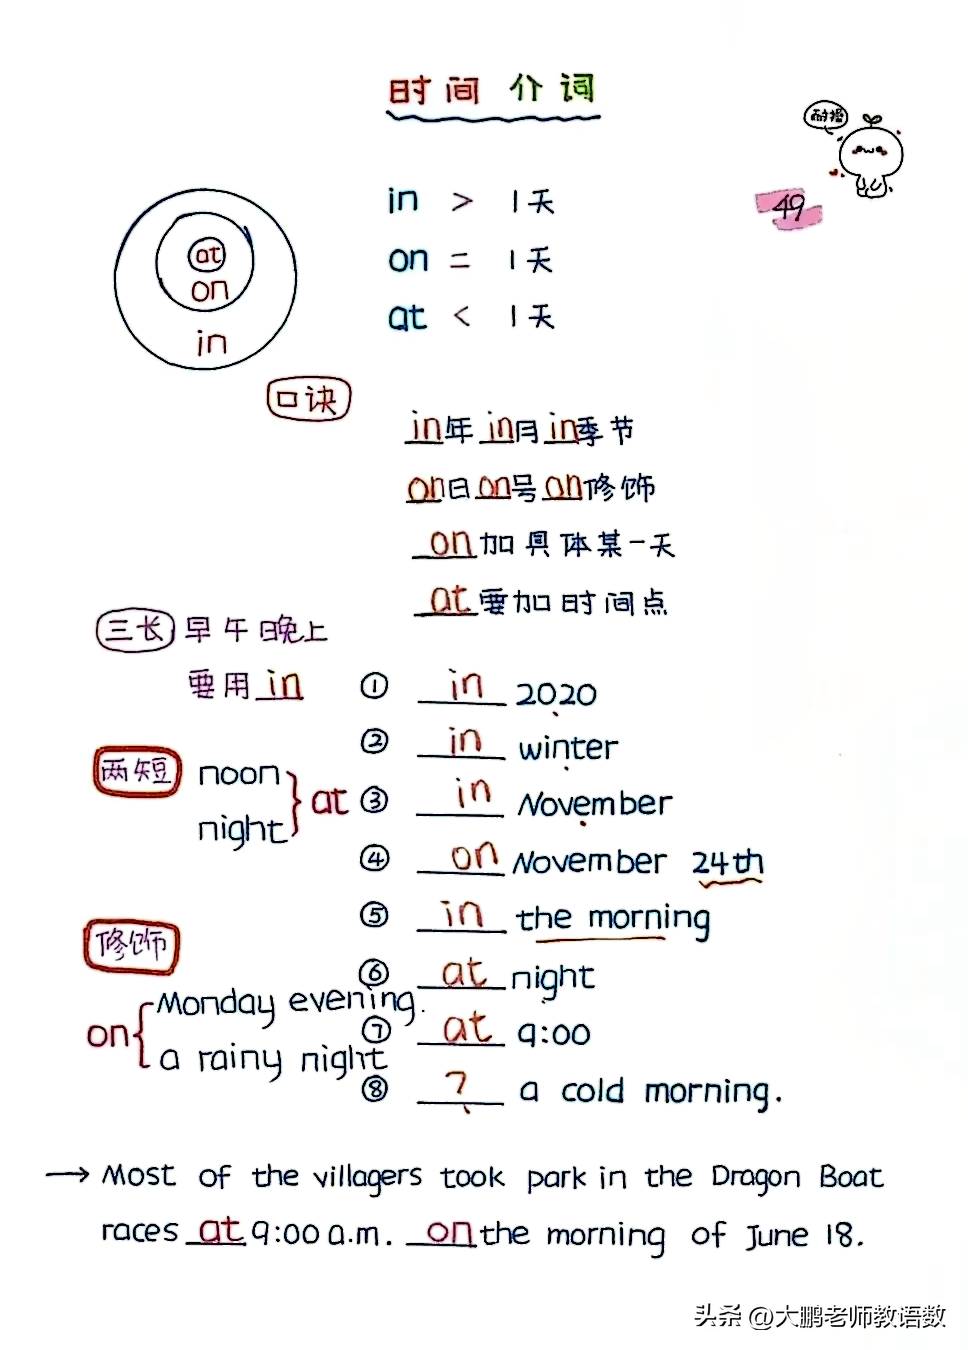 时间介词
耐操
49
in > 1天
on = 1天
at < 1天
at
on
in
口诀
in年in月in季节
on日on号on修饰
on加具体某一天
at要加时间点
三长 早午晚上
要用in
两短 noon
night
at
修饰
on
Monday evening.
a rainy night
① in 2020
② in winter
③ in November
④ on November 24th
⑤ in the morning
⑥ at night
⑦ at 9:00
⑧ ? a cold morning.
→ Most of the villagers took park in the Dragon Boat
races at 9:00 a.m. on the morning of June 18.
头条 @大鹏老师教语数